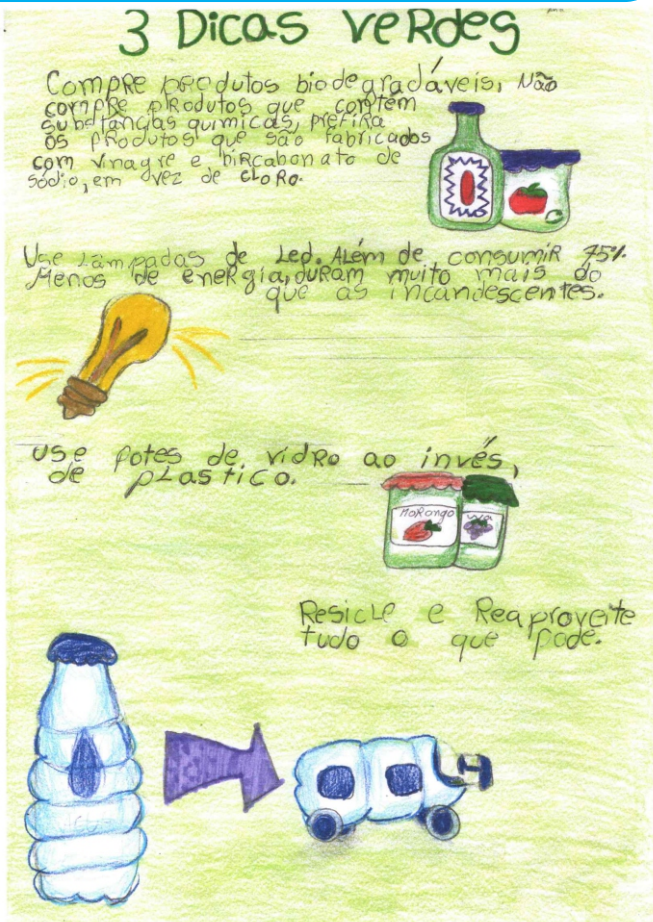 3 Dicas Verdes
Compre produtos biodegradáveis, Não
compre produtos que contém
substângias quimicas, prefira
os produtos que são fabricados
com vinagre e bircabonato de
sódio, em vez de cloro.
Use Lâmpadas de Led. Além de consumir 75%
Menos de energia, duram muito mais do
que as incandescentes.
Use potes de vidro ao invés,
de plastico.
Morango
uva
Resicle e Reaproveite
tudo o que pode.